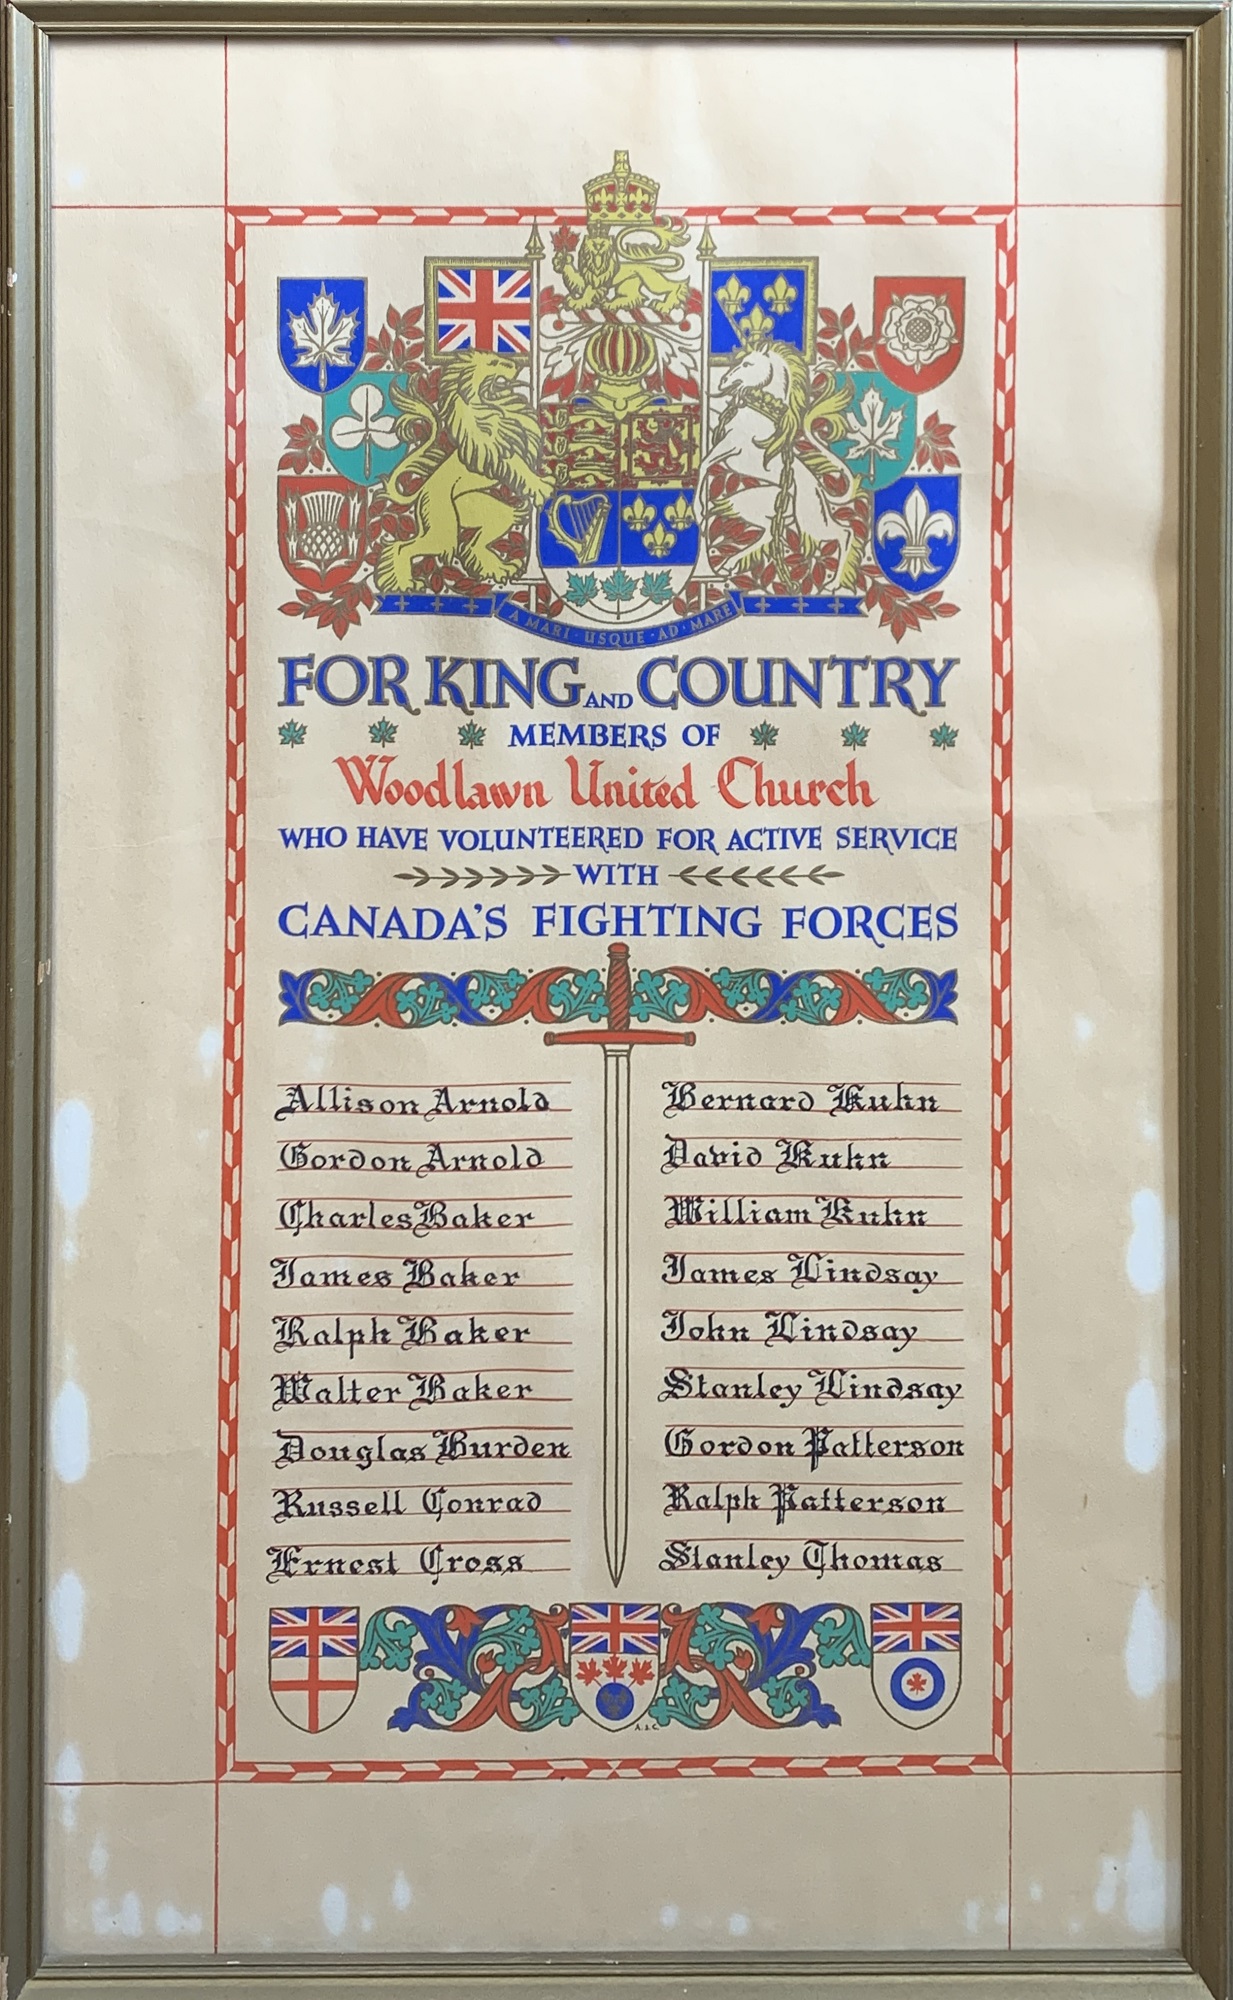 A MARI · USQUE · AD · MARE
FOR KING AND COUNTRY
MEMBERS OF
Woodlawn United Church
WHO HAVE VOLUNTEERED FOR ACTIVE SERVICE
WITH
CANADA'S FIGHTING FORCES
Allison Arnold
Gordon Arnold
Charles Baker
James Baker
Ralph Baker
Walter Baker
Douglas Burden
Russell Conrad
Ernest Cross
Bernard Kuhn
David Kuhn
William Kuhn
James Lindsay
John Lindsay
Stanley Lindsay
Gordon Patterson
Ralph Patterson
Stanley Thomas
A.J.C.